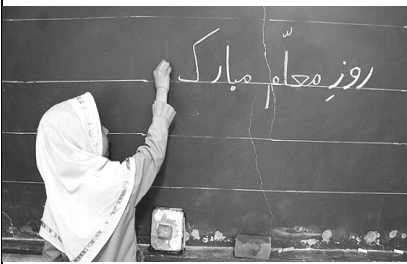 روزِ معلّم مبارک